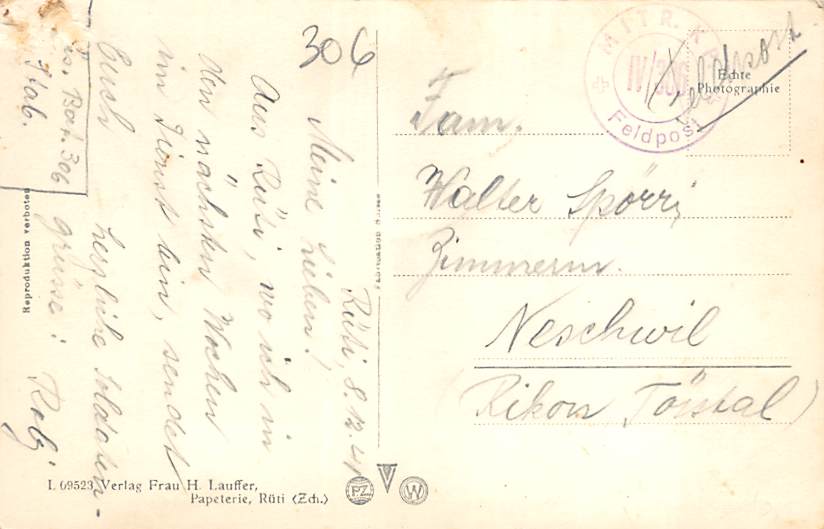 306
Rüti, 8.12.41
Meine Lieben!
Aus Rüti, wo ich in
den nächsten Wochen
im Dienst bin, sendet
Euch herzliche Soldaten-
grüsse: Robi
Bat. 306
Stab.
MITR. K
IV/306
Feldpost
Feldpost
Echte
Photographie
Fam.
Walter Spörri
Zimmerm.
Neschwil
(Rikon Tösstal)
Reproduktion verboten
L 09523 Verlag Frau H. Lauffer,
Papeterie, Rüti (Zch.)
PZ
W